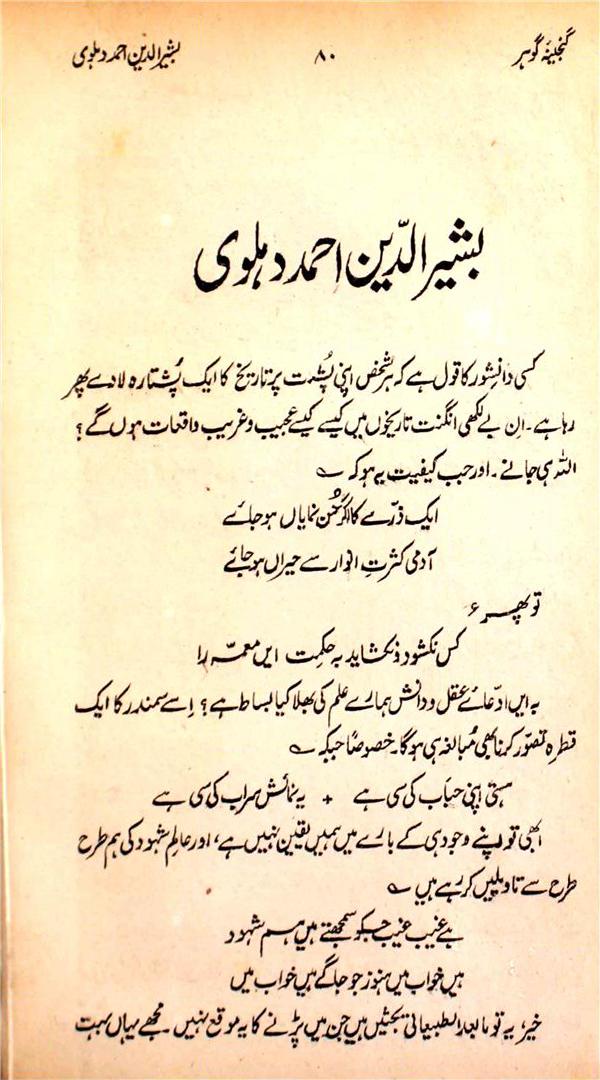 گنجینۂ گوہر ۸۰ بشیر الدین احمد دہلوی
بشیر الدّین احمد دہلوی
کسی دانشور کا قول ہے کہ ہر شخص اپنی پُشت پر تاریخ کا ایک پُشتارہ لادے پھر
رہا ہے۔ اِن بے لکھی انگنت تاریخوں میں کیسے کیسے عجیب و غریب واقعات ہوں گے؟
اللہ ہی جانے۔ اور جب کیفیت یہ ہو کہ ؎
ایک ذرّے کا اگر حُسن نمایاں ہو جائے
آدمی کثرتِ انوار سے حیراں ہو جائے
تو پھر ؏
کس نکشود و نکشاید بہ حکمت ایں معمّہ را
بہ ایں ادّعائے عقل و دانش ہمارے علم کی بھلا کیا بساط ہے؟ اِسے سمندر کا ایک
قطرہ تصوّر کرنا بھی مُبالغہ ہی ہوگا۔ خصوصاً جبکہ ؎
ہستی اپنی حباب کی سی ہے + یہ نمائش سراب کی سی ہے
ابھی تو اپنے وجود ہی کے بارے میں ہمیں یقین نہیں ہے، اور عالمِ شہود کی ہم طرح
طرح سے تاویلیں کر رہے ہیں ؎
ہے غیب غیب جس کو سمجھتے ہیں ہم شہود
ہیں خواب میں ہنوز جو جاگے ہیں خواب میں
خیر، یہ تو مابعد الطبیعاتی بحثیں ہیں جن میں پڑنے کا یہ موقع نہیں۔ مجھے یہاں بہت